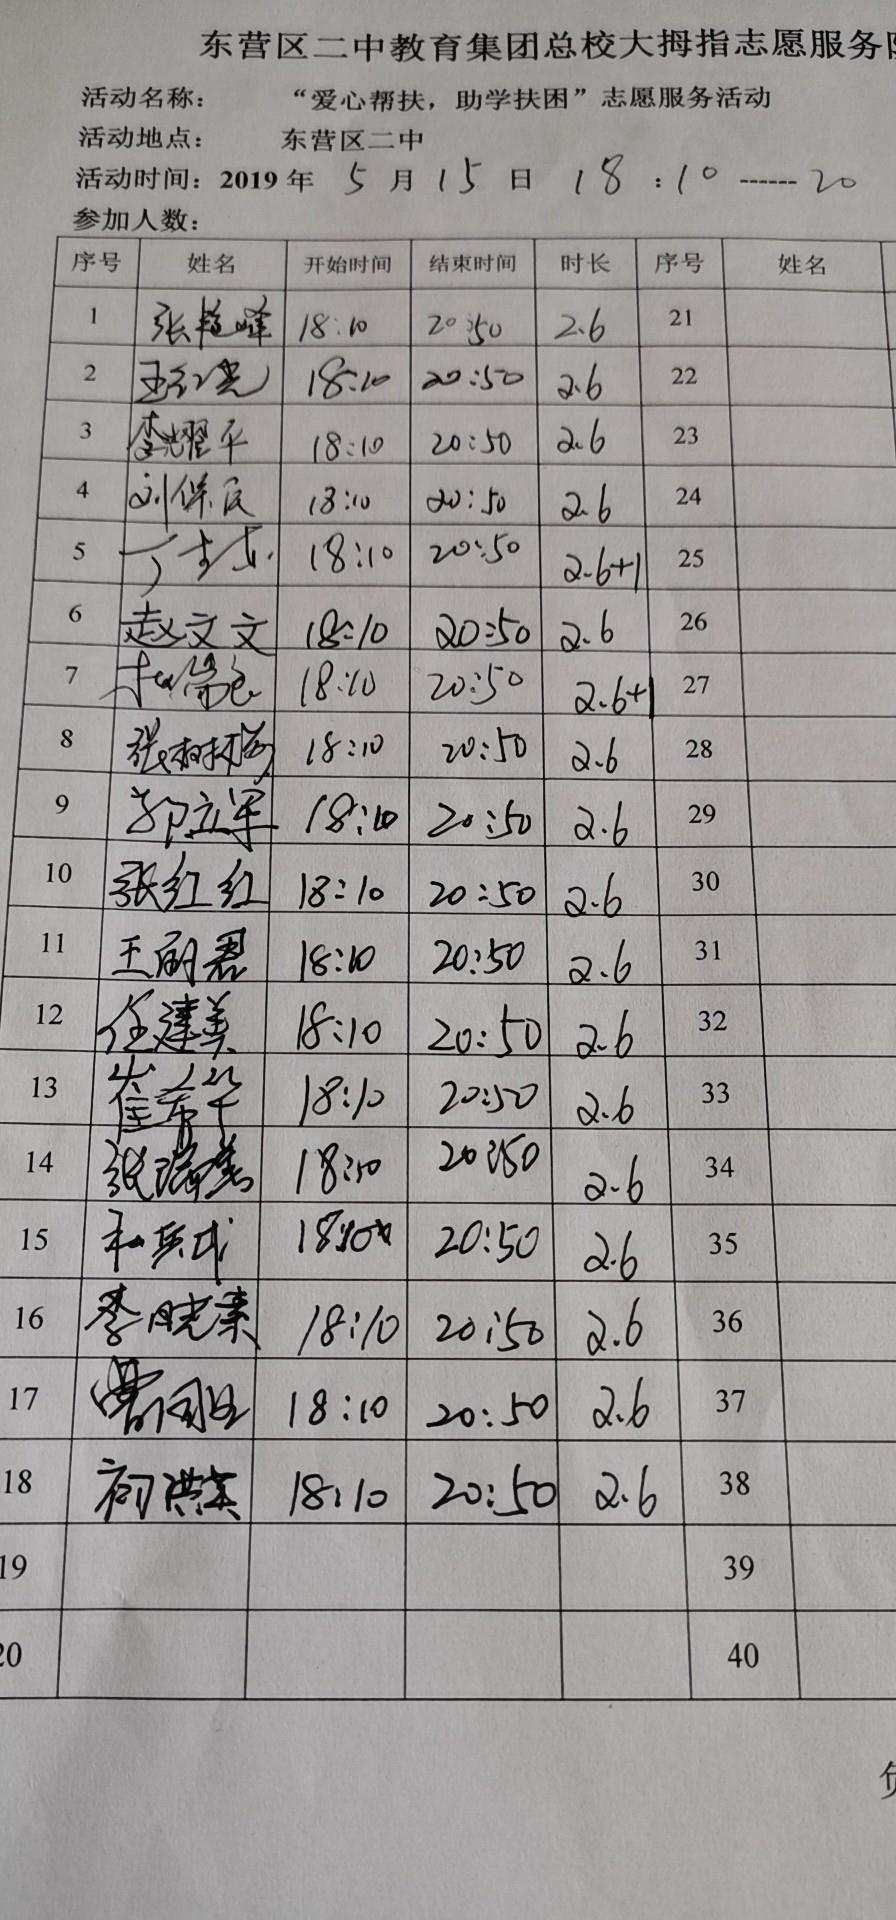 东营区二中教育集团总校大拇指志愿服务
活动名称： “爱心帮扶，助学扶困”志愿服务活动
活动地点： 东营区二中
活动时间：2019年 5 月 15 日 18 :10 ------ 20
参加人数：
序号 姓名 开始时间 结束时间 时长 序号 姓名
1 张艳峰 18:10 20:50 2.6 21
2 18:10 20:50 2.6 22
3 李耀平 18:10 20:50 2.6 23
4 刘保民 18:10 20:50 2.6 24
5 18:10 20:50 2.6+1 25
6 赵文文 18:10 20:50 2.6 26
7 18:10 20:50 2.6+1 27
8 张树梅 18:10 20:50 2.6 28
9 郭立军 18:10 20:50 2.6 29
10 张红红 18:10 20:50 2.6 30
11 王丽君 18:10 20:50 2.6 31
12 任建美 18:10 20:50 2.6 32
13 18:10 20:50 2.6 33
14 18:10 20:50 2.6 34
15 20:50 2.6 35
16 李晓素 18:10 20:50 2.6 36
17 18:10 20:50 2.6 37
18 18:10 20:50 2.6 38
19 39
20 40